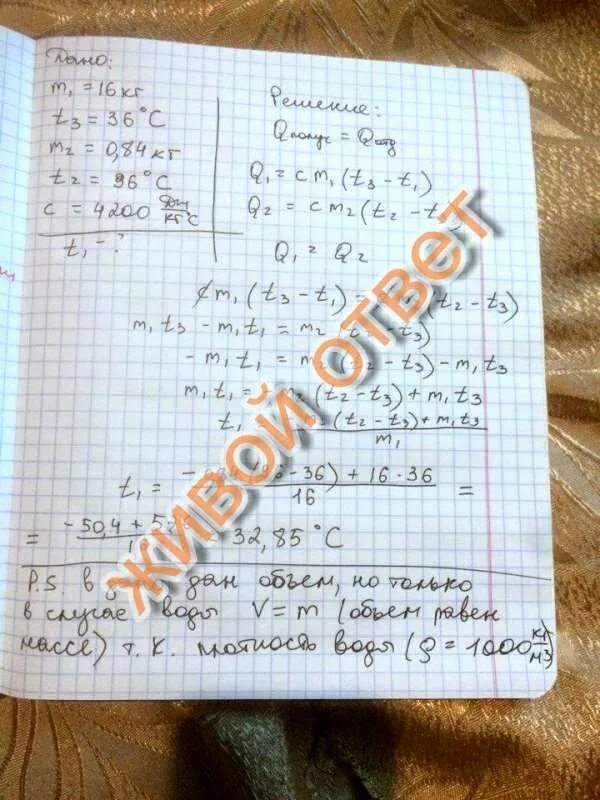 Дано:
m₁ = 16 кг
t₃ = 36°C
m₂ = 0,84 кг
t₂ = 96°C
c = 4200 Дж/кг°C
t₁ - ?
Решение:
Qполуч = Qотд
Q₁ = c m₁ (t₃ - t₁)
Q₂ = c m₂ (t₂ - t
Q₁ = Q₂
c m₁ (t₃ - t₁) = (t₂ - t₃)
m₁ t₃ - m₁ t₁ = m₂ (t₂ - t₃)
- m₁ t₁ = m₂ (t₂ - t₃) - m₁ t₃
m₁ t₁ = (t₂ - t₃) + m₁ t₃
t₁ (t₂ - t₃) + m₁ t₃ / m₁
t₁ = - 36) + 16 · 36 / 16 =
= -50,4 + 32,85 °C
P.S. в дан объем, но только
в случае воды V = m (объем равен
массе) т.к. плотность воды (ρ = 1000 кг/м3)
ЖИВОЙ ОТВЕТ